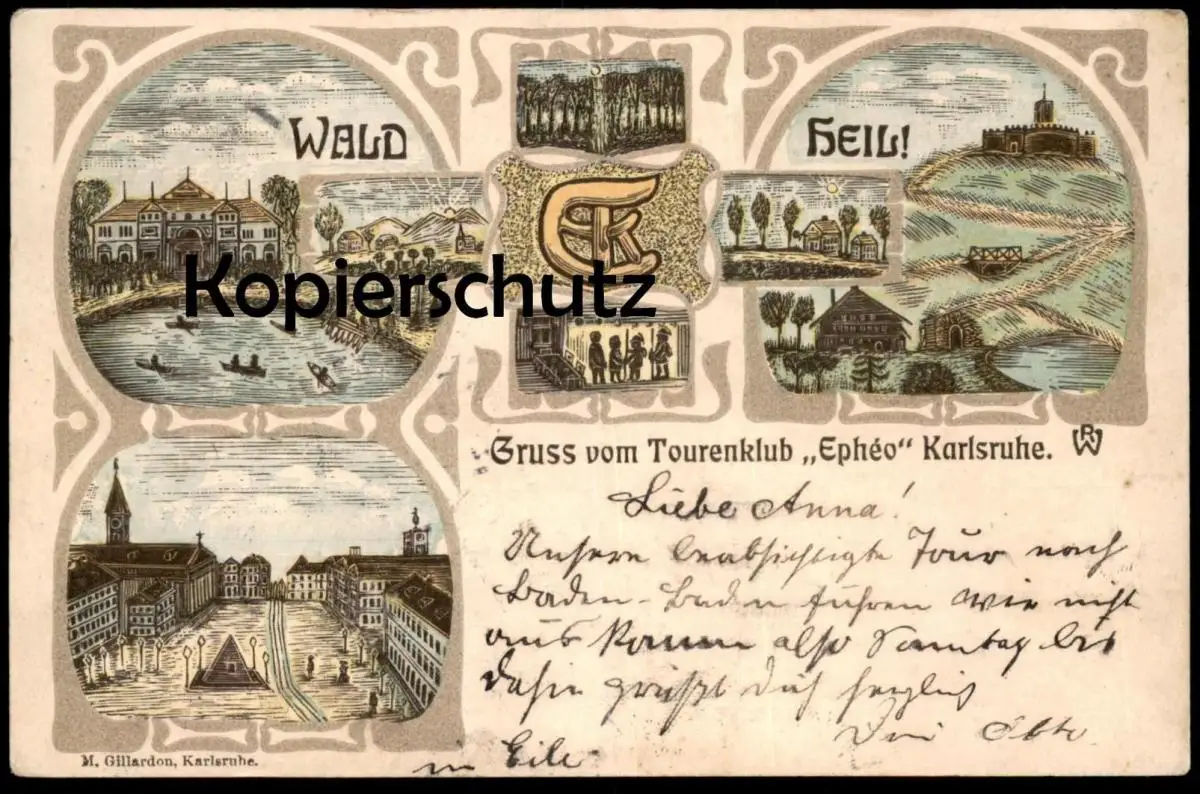 WALD
HEIL!
EK
Kopierschutz
Gruss vom Tourenklub „Ephéo“ Karlsruhe.
PW
Liebe Anna!
Unsere beabsichtigte Tour nach
Baden-Baden führen wir nicht
aus komm also Sonntag bis
dahin grüßt Dich herzlich
in Eile
M. Gillardon, Karlsruhe.